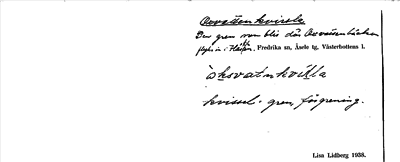 Åsvattenkvisela
Den gren som blir där Åsvattenbäcken
flyter in i Fredrika sn, Åsele tg, Västerbottens l.
kvissel: gren, förgrening.
Lisa Lidberg 1938.